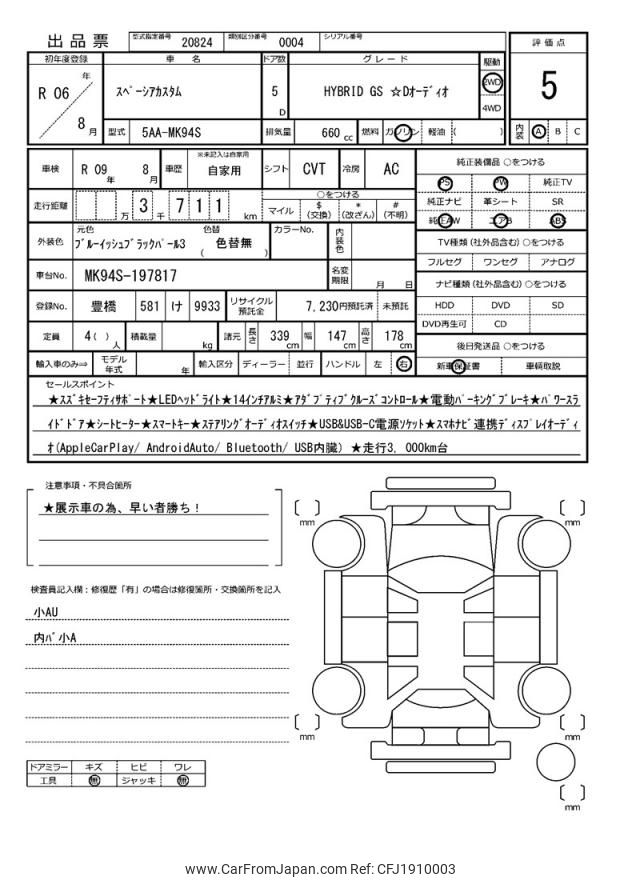 出品票 型式指定番号 20824 類別区分番号 0004 シリアル番号
初年度登録 車名 ドア数 グレード 駆動 評価点
R 06 年 8 月 スペーシアカスタム 5 D HYBRID GS ☆Dオーディオ 2WD 4WD 5
型式 5AA-MK94S 排気量 660 cc 燃料 ガソリン 軽油 ( ) 内装 A B C
車検 R 09 年 8 月 車歴 ※未記入は自家用 自家用 シフト CVT 冷房 AC 純正装備品 ○をつける
PS PW 純正TV
走行距離 万 3 千 7 1 1 km ○をつける 純正ナビ 革シート SR
マイル $ (交換) * (改ざん) # (不明) 純正AW エアB ABS
外装色 元色 ブルーイッシュブラックパール3 色替 ( 色替無 ) カラーNo. 内装色 TV種類 (社外品含む) ○をつける
フルセグ ワンセグ アナログ
車台No. MK94S-197817 名変期限 月 日 ナビ種類 (社外品含む) ○をつける
登録No. 豊橋 581 け 9933 リサイクル預託金 7,230円預託済 未預託 HDD DVD SD
DVD再生可 CD
定員 4 ( ) 人 積載量 kg 諸元 長さ 339 cm 幅 147 cm 高さ 178 cm 後日発送品 ○をつける
輸入車のみ⇒ モデル年式 年 輸入区分 ディーラー 並行 ハンドル 左 右 新車保証書 車輌取説
セールスポイント
★スズキセーフティサポート★LEDヘッドライト★14インチアルミ★アダプティブクルーズコントロール★電動パーキングブレーキ★パワースラ
イドドア★シートヒーター★スマートキー★ステアリングオーディオスイッチ★USB&USB-C電源ソケット★スマホナビ連携ディスプレイオーディ
オ(AppleCarPlay/ AndroidAuto/ Bluetooth/ USB内臓) ★走行3, 000km台
注意事項・不具合箇所
★展示車の為、早い者勝ち!
mm
mm
検査員記入欄:修復歴「有」の場合は修復箇所・交換箇所を記入
小AU
内バ小A
mm
mm
ドアミラー キズ ヒビ ワレ
工具 無 ジャッキ 無
mm
www.CarFromJapan.com Ref: CFJ1910003